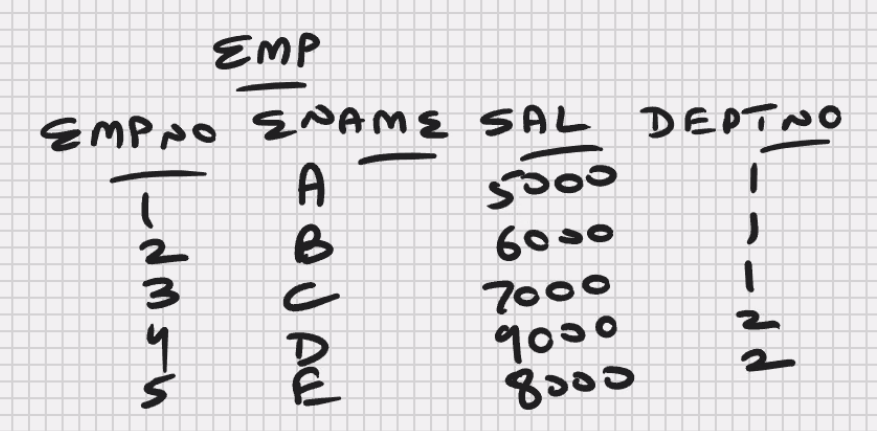 EMP
EMPNO ENAME SAL DEPTNO
1 A 5000 1
2 B 6000 1
3 C 7000 1
4 D 9000 2
5 E 8000 2